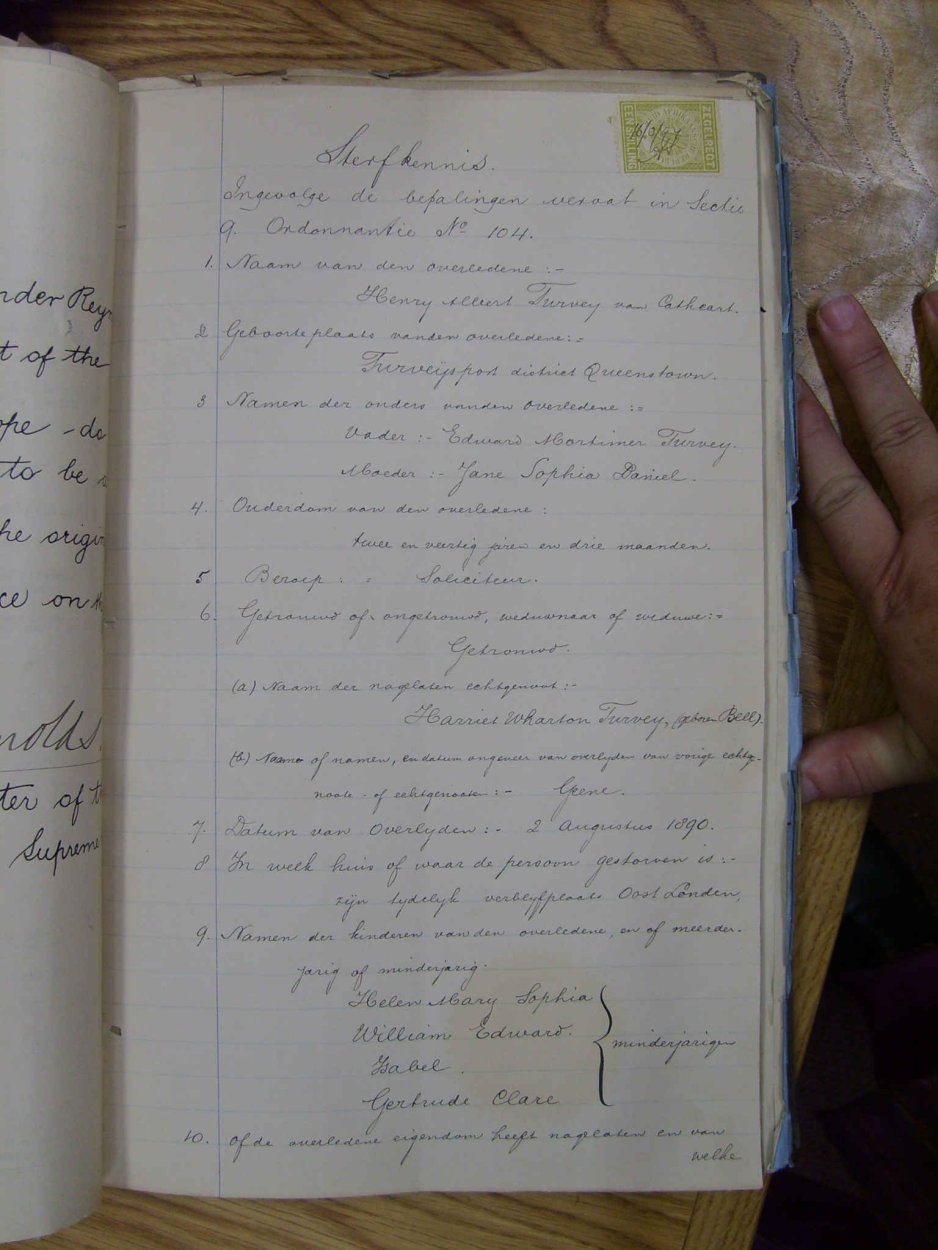 nder Rey
t of the
ope - do
to be
he origin
ce on th
nolds.
ter of t
Supreme
ZEGELREGT
EEN SHILLING
16/9/97
Sterfkennis.
Ingevolge de bepalingen vervat in Sectie
9. Ordonnantie No 104.
1. Naam van den overledene :-
Henry Albert Turvey van Cathcart.
2 Geboorteplaats vanden overledene :=
Turveyspost district Queenstown.
3 Namen der ouders vanden overledene :=
Vader :- Edward Mortimer Turvey.
Moeder :- Jane Sophia Daniel.
4. Ouderdom van den overledene :
twee en veertig jiren en drie maanden.
5 Beroep : = Soliciteur.
6. Getrouwd of ongetrouwd, weduwnaar of weduwe :=
Getrouwd.
(a) Naam der nagelaten echtgenoot :-
Harriet Wharton Turvey, (geboren Bell).
(b) Naam of namen, en datum ongeveer van overlyden van vorige echtge-
noote of echtgenooten :- Geene.
7. Datum van Overlyden :- 2 Augustus 1890.
8 In welk huis of waar de persoon gestorven is :-
zijn tydelyk verblyfplaats Oost Londen,
9. Namen der kinderen van den overledene, en of meerder-
jarig of minderjarig.
Helen Mary Sophia
William Edward.
Isabel.
Gertrude Clare
minderjarigen
10. of de overledene eigendom heeft nagelaten en van
welke